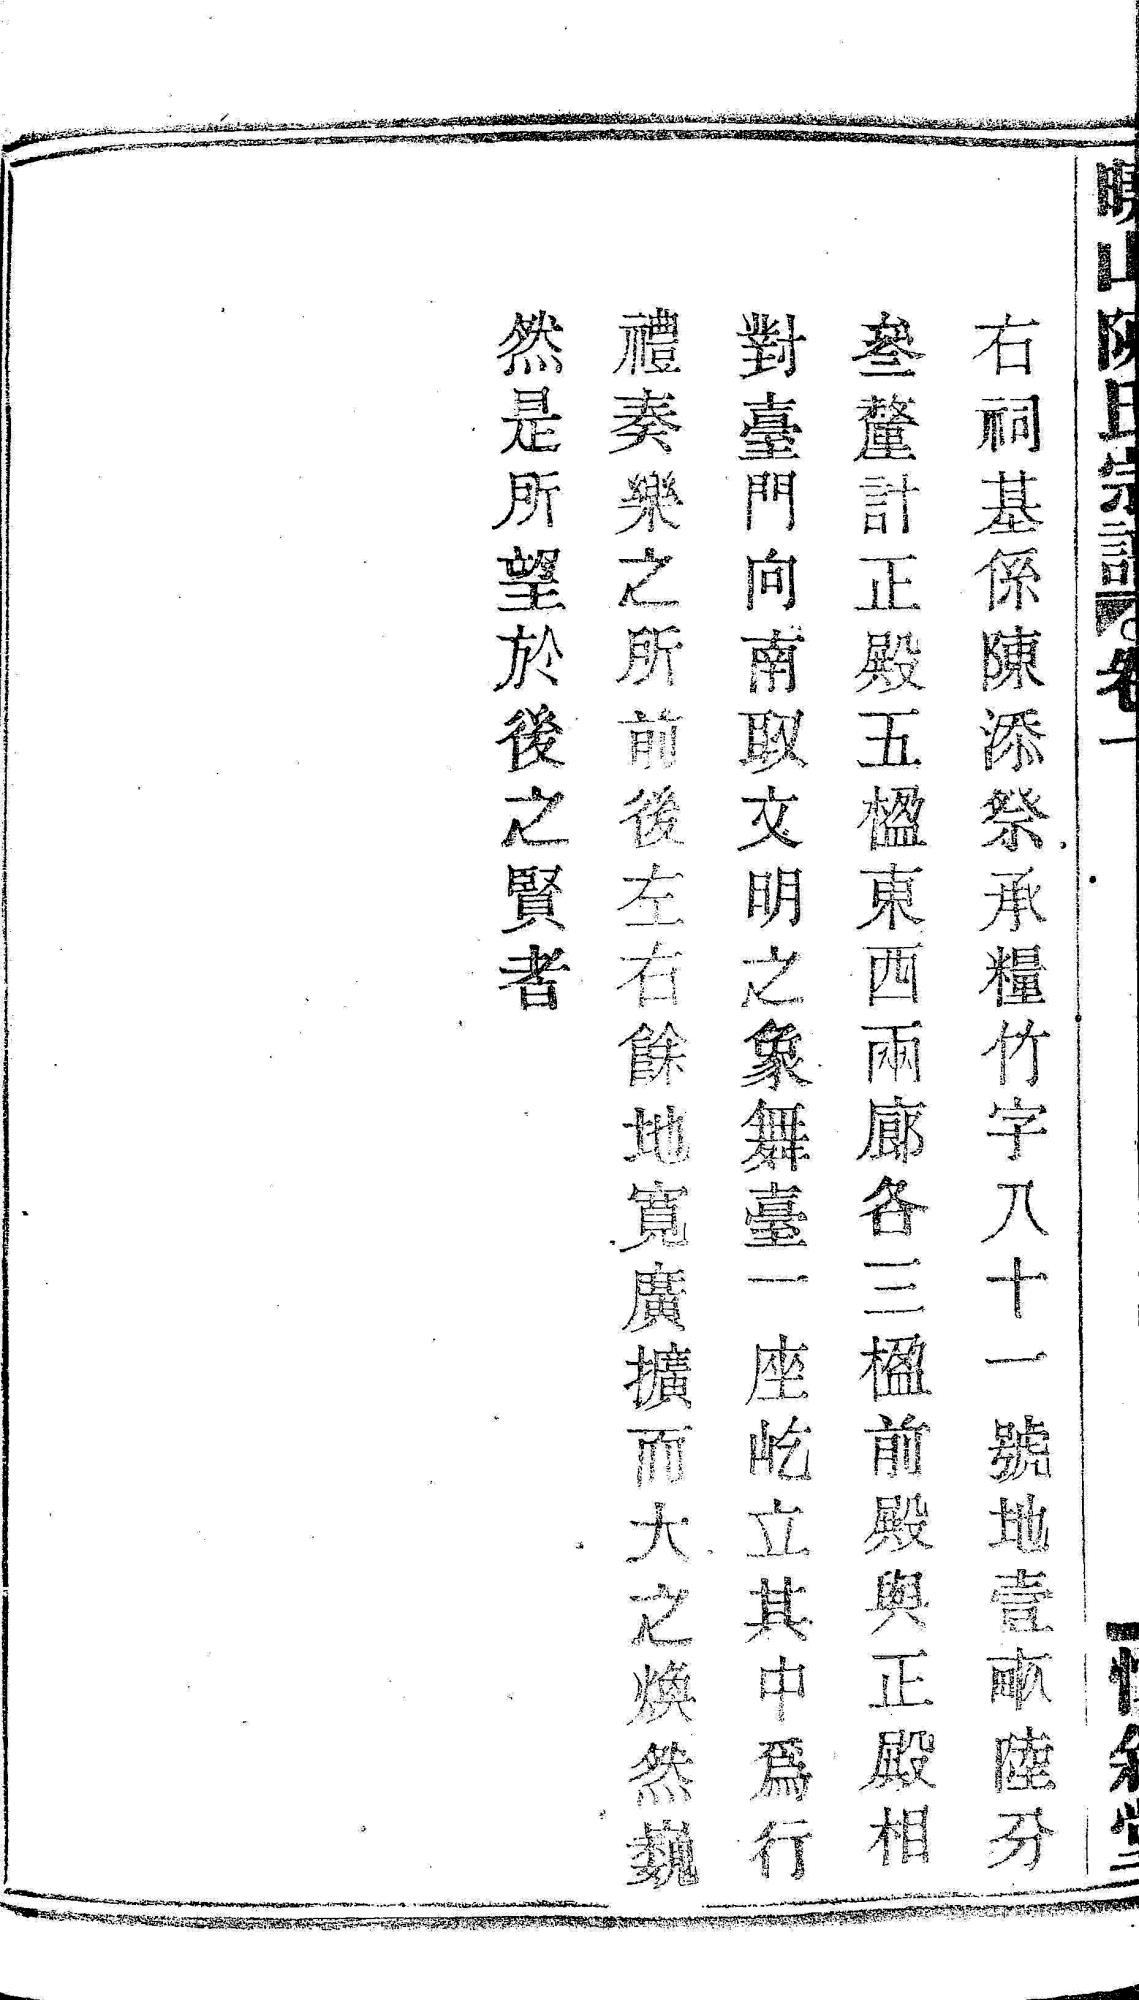 山陳氏宗譜 卷一
右祠基係陳添祭承糧竹字八十一號地壹畝陸分
叁釐計正殿五楹東西兩廊各三楹前殿與正殿相
對臺門向南取文明之象舞臺一座屹立其中爲行
禮奏樂之所前後左右餘地寬廣擴而大之煥然巍
然是所望於後之賢者